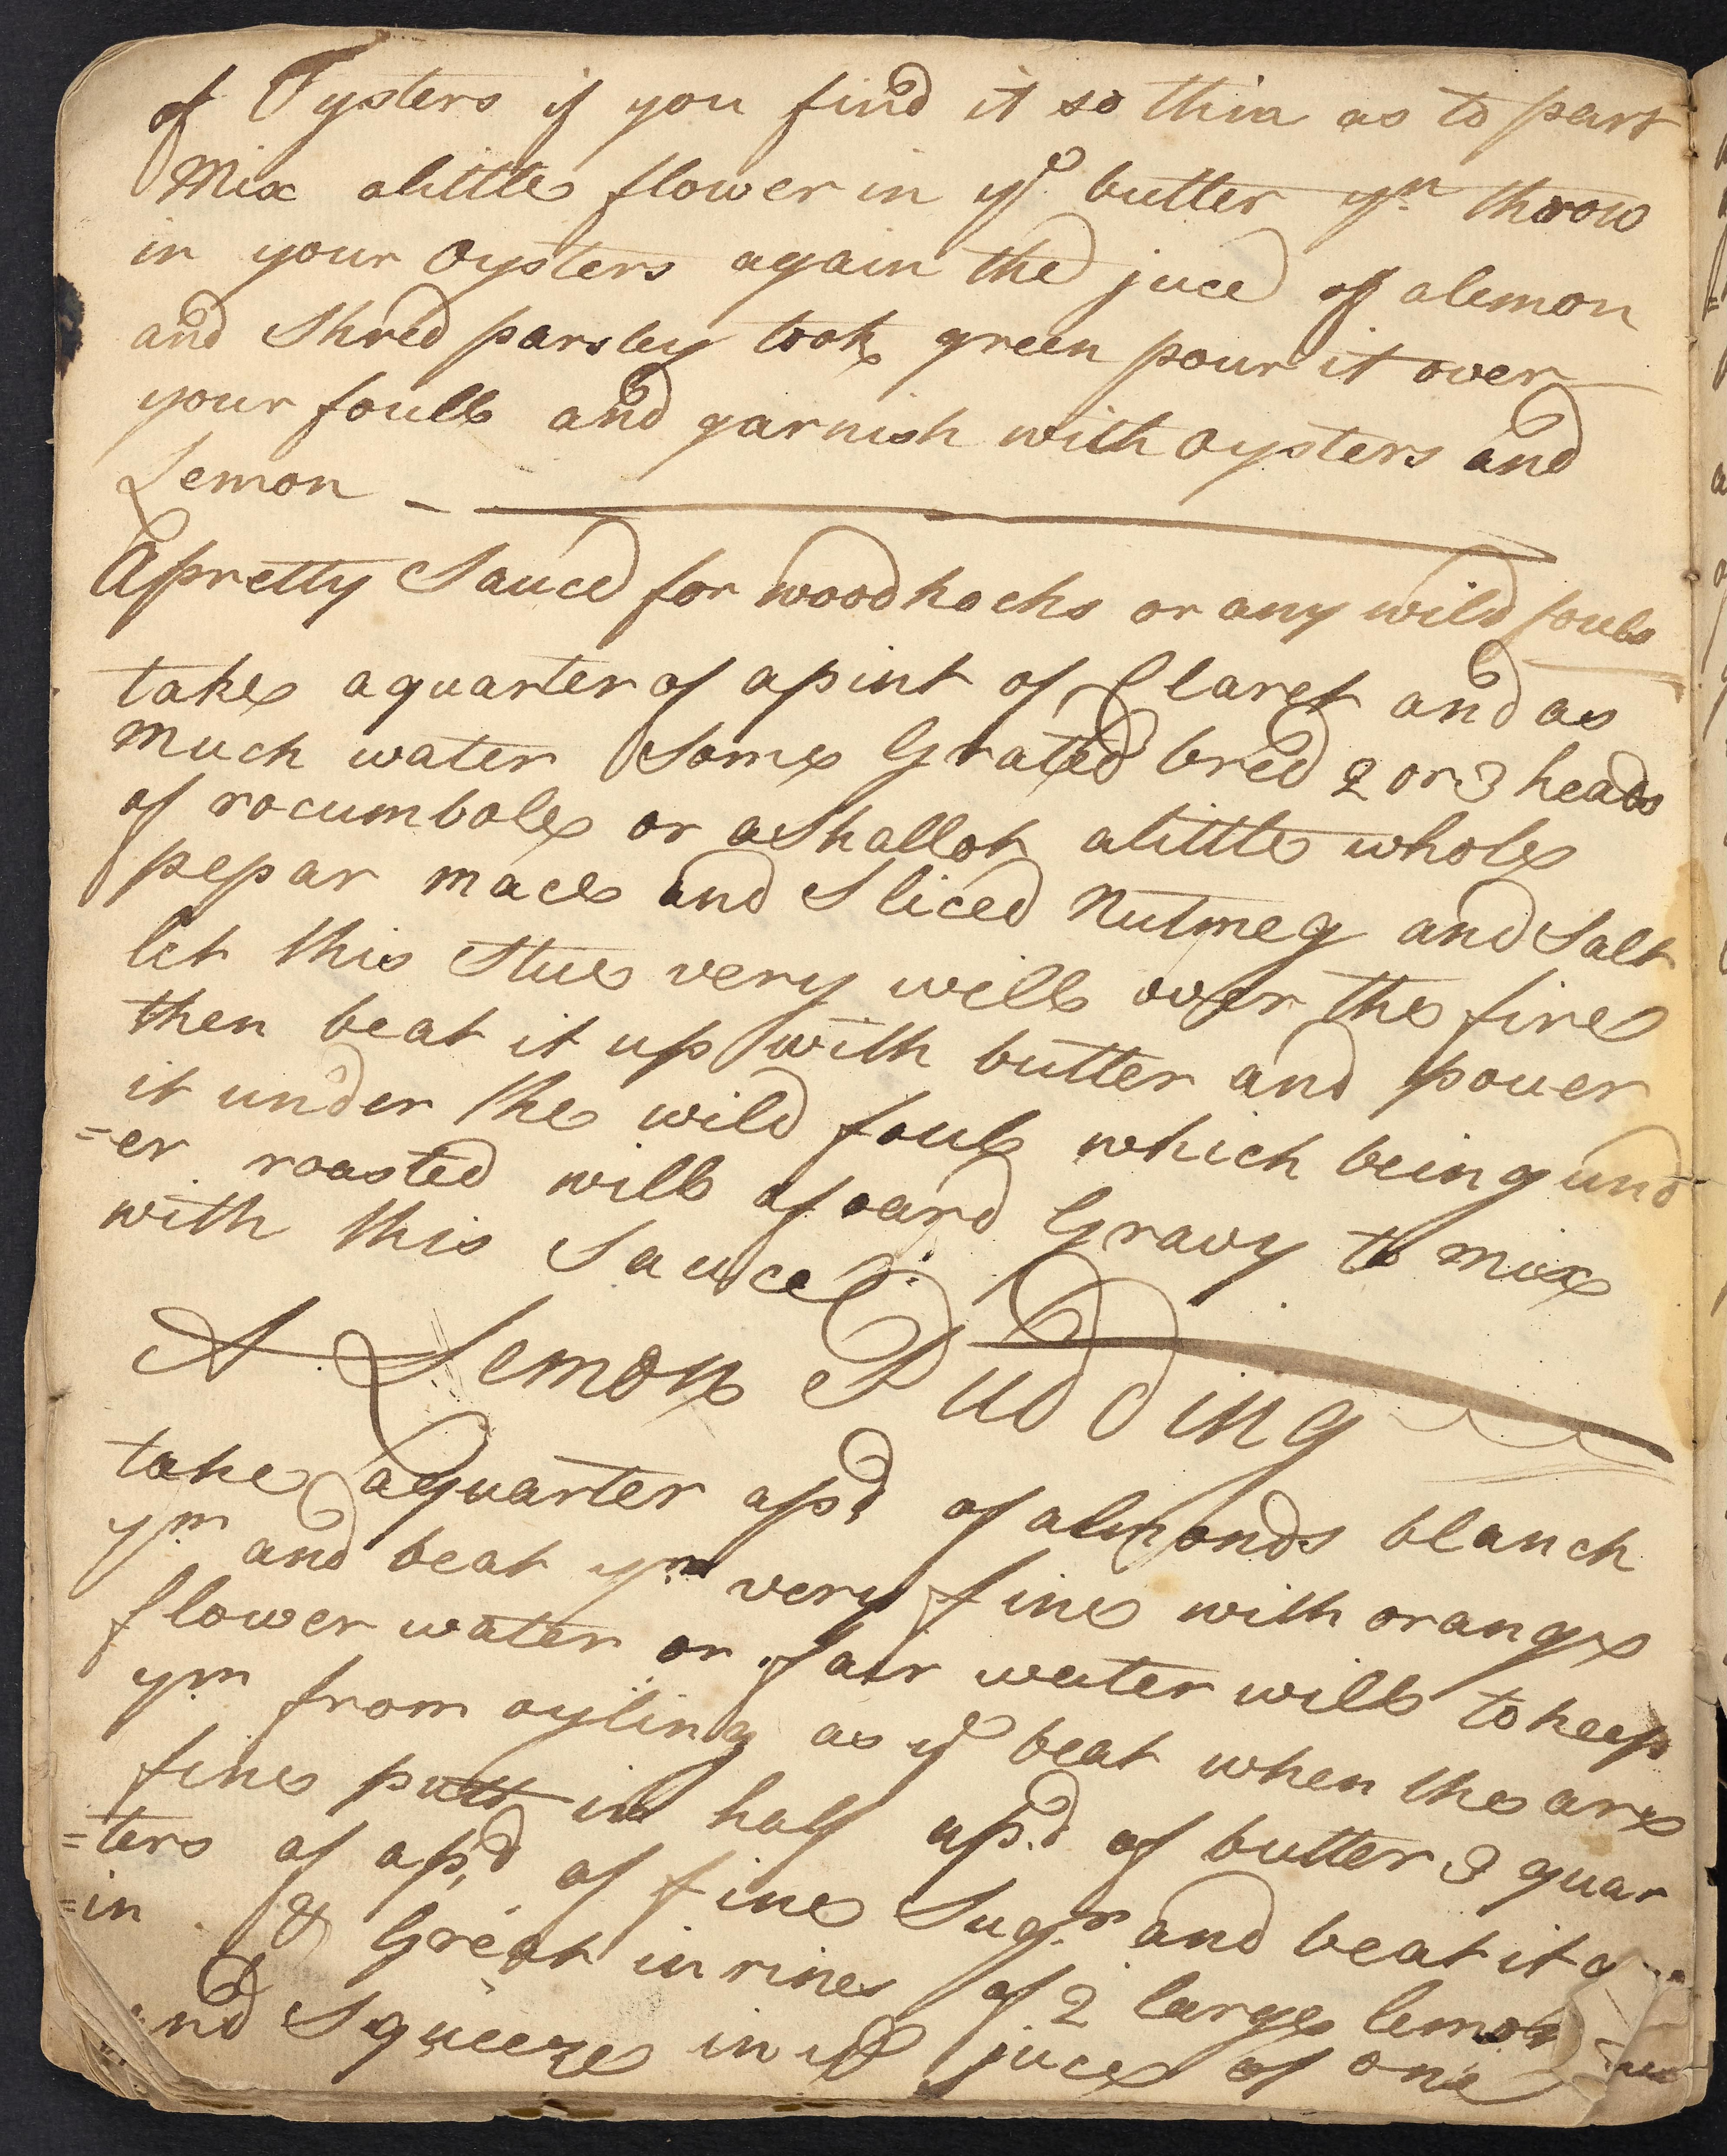 of Oysters if you find it so thin as to part
Mix alittle flower in ye butter yn throw
in your Oysters again the juce of alemon
and Shred parsley took green pour it over
your foull and garnish with oysters and
Lemon
Apretty Sauce for woodkocks or any wild fouls
take aquarter of apint of Claret and as
much water Some Grated bred 2 or 3 heads
of rocumbole or aShallot alittle whole
pepar mace and Sliced Nutmeg and Salt
let this Stue very well over the fire
then beat it up with butter and pouer
it under the wild foul which being und
=er roasted will afoard Gravy to mix
with this Sauce
A Lemon Pudding
take aquarter apd of almonds blanch
ym and beat ym very fine with orange
flower water or fair water will to keep
ym from oyling as ye beat when the are
fine putt in half apd of butter 3 quar
=ters of apd of fine Sugr and beat it
=in & Great in rines of 2 large lemon
and Squeeze in ye juce of one